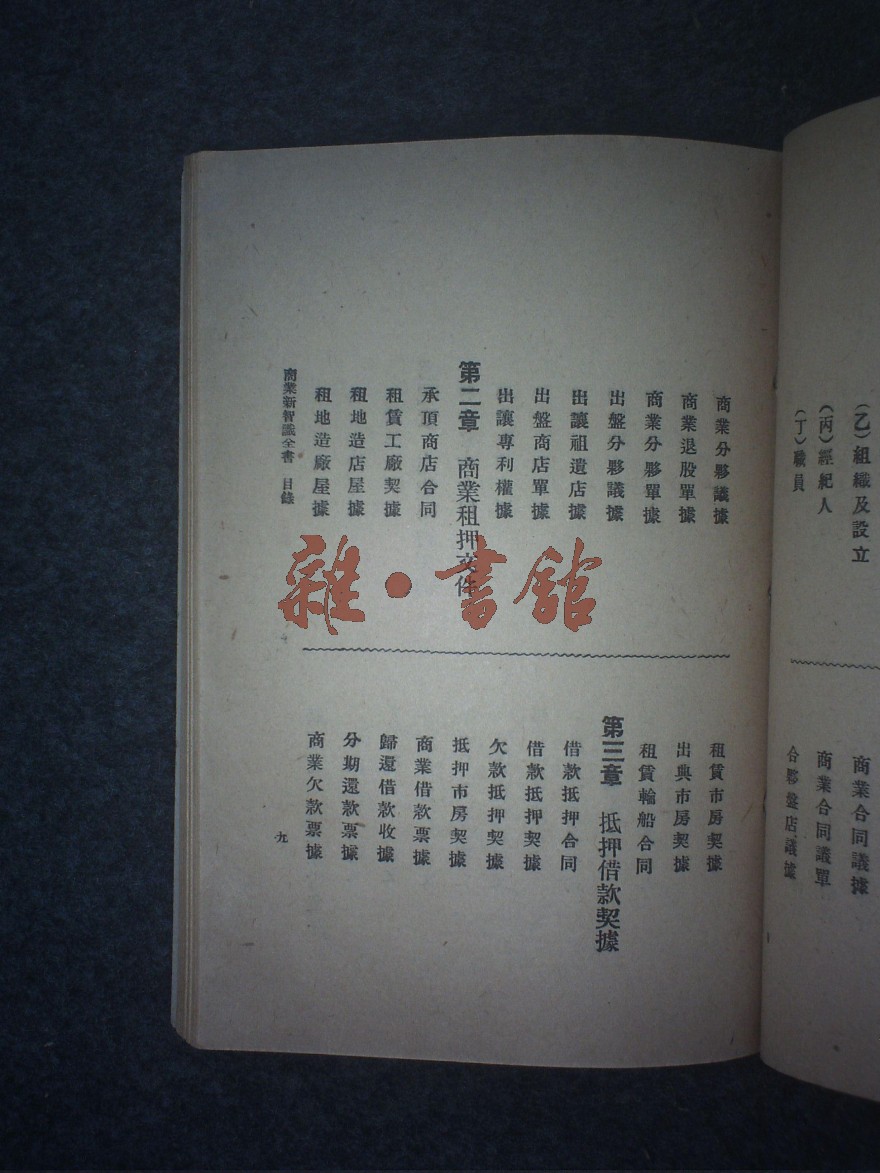 (乙)組織及設立
(丙)經紀人
(丁)職員
商業合同議據
商業合同議單
合夥盤店議據
商業分夥議據
商業退股單據
商業分夥單據
出盤分夥議據
出讓祖遺店據
出盤商店單據
出讓專利權據
第二章 商業租押文件
承頂商店合同
租賃工廠契據
租地造店屋據
租地造廠屋據
租賃市房契據
出典市房契據
租賃輪船合同
第三章 抵押借款契據
借款抵押合同
借款抵押契據
欠款抵押契據
抵押市房契據
商業借款票據
歸還借款收據
分期還款票據
商業欠款票據
商業新智識全書 目錄
九
雜·書館